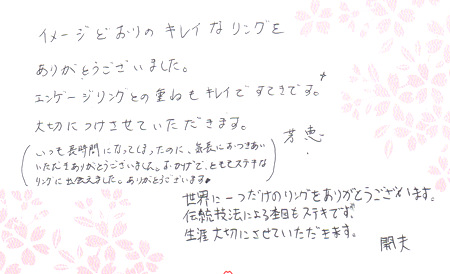 イメージどおりの キレイなリングを
ありがとうございました。
エンゲージリングとの重ねもキレイですてきです。
大切につけさせていただきます。
芳恵
(いつも長時間になってしまったのに、気長におつきあい
いただきありがとうございました。おかげで、とてもステキな
リングに出会えました。ありがとうございます♪)
世界に一つだけのリングをありがとうございます。
伝統技法による杢目もステキです。
生涯大切にさせていただきます。